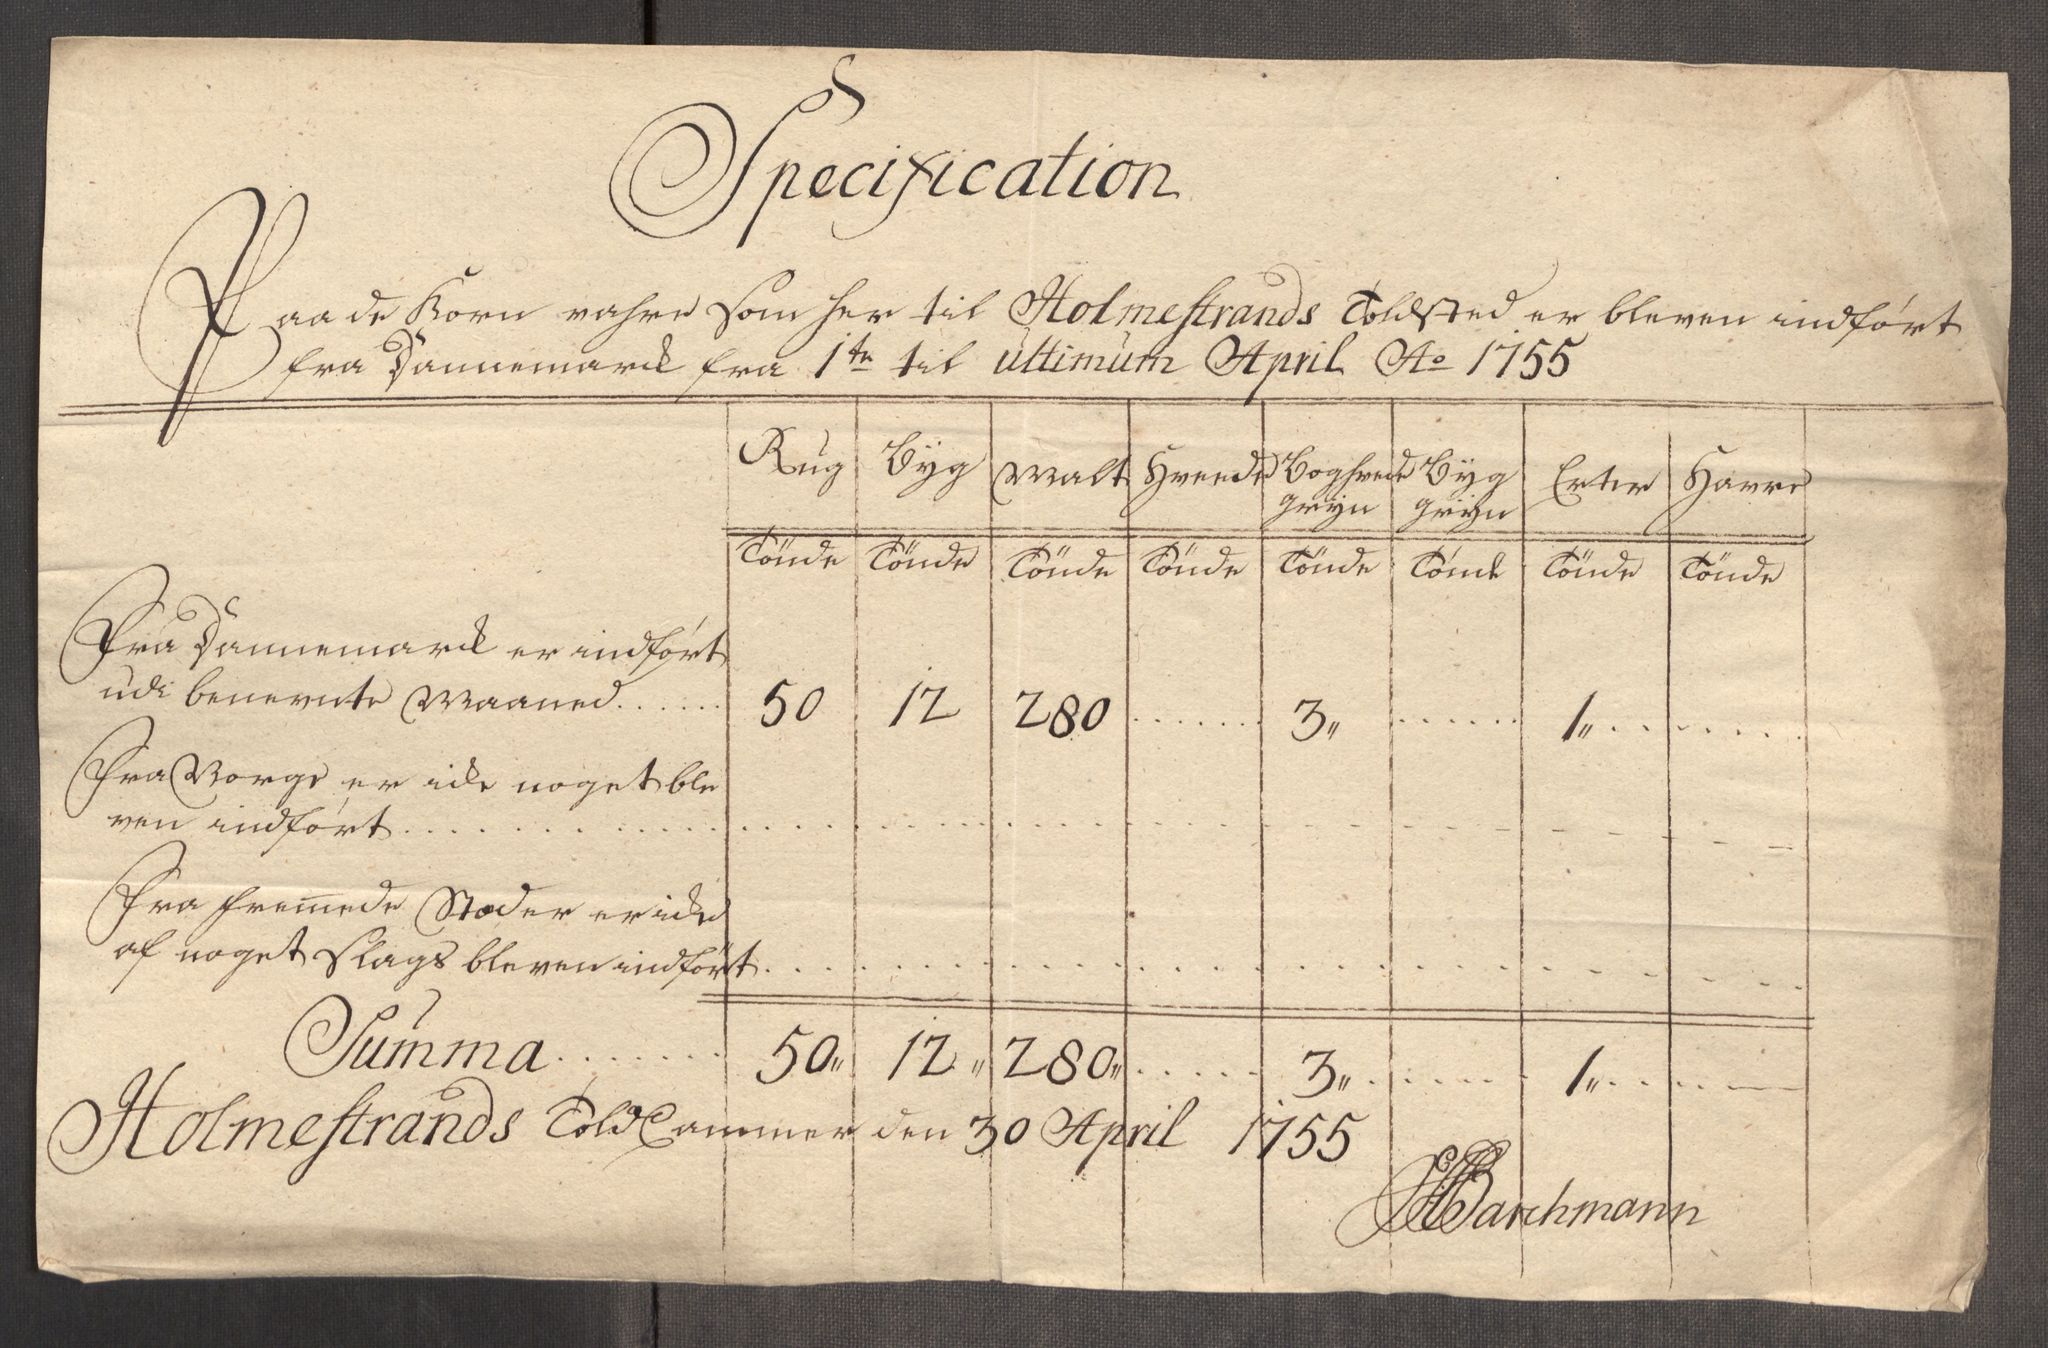 Specification
Paa de Korn vahre som her til Holmestrands Toldsted er bleven indført
fra Dannemarck fra 1te til ultimum April Ao 1755
Rug Byg Malt Hvede Boghvede gryn Byg gryn Erter Havre
Tönde Tönde Tönde Tönde Tönde Tönde Tönde Tönde
Fra Dannemarck er indført
udi benevnte Maaned...... 50 12 280 ...... 3,, ...... 1,, ......
Fra Norge er icke noget ble
ven indført......
Fra fremede Stæder er icke
af noget slags bleven indført......
Summa...... 50,, 12,, 280,, ...... 3,, ...... 1,, ......
Holmestrands Told Cammer den 30 April 1755
Barchmann